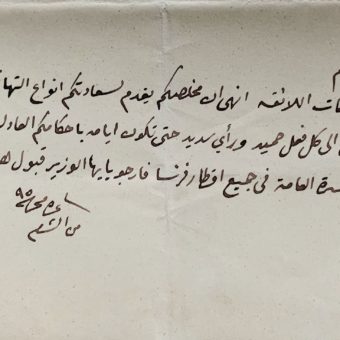 م
ات اللائقه انهى ان مخلصكم يقدم لسعادتكم انواع التها
الى كل فعل حميد ورأي سديد حتى تكون ايامه باحكامكم العادل
سرة العامة فى جميع اقطار فرنسا فارجو يايها الوزير قبول هـ
من الشام